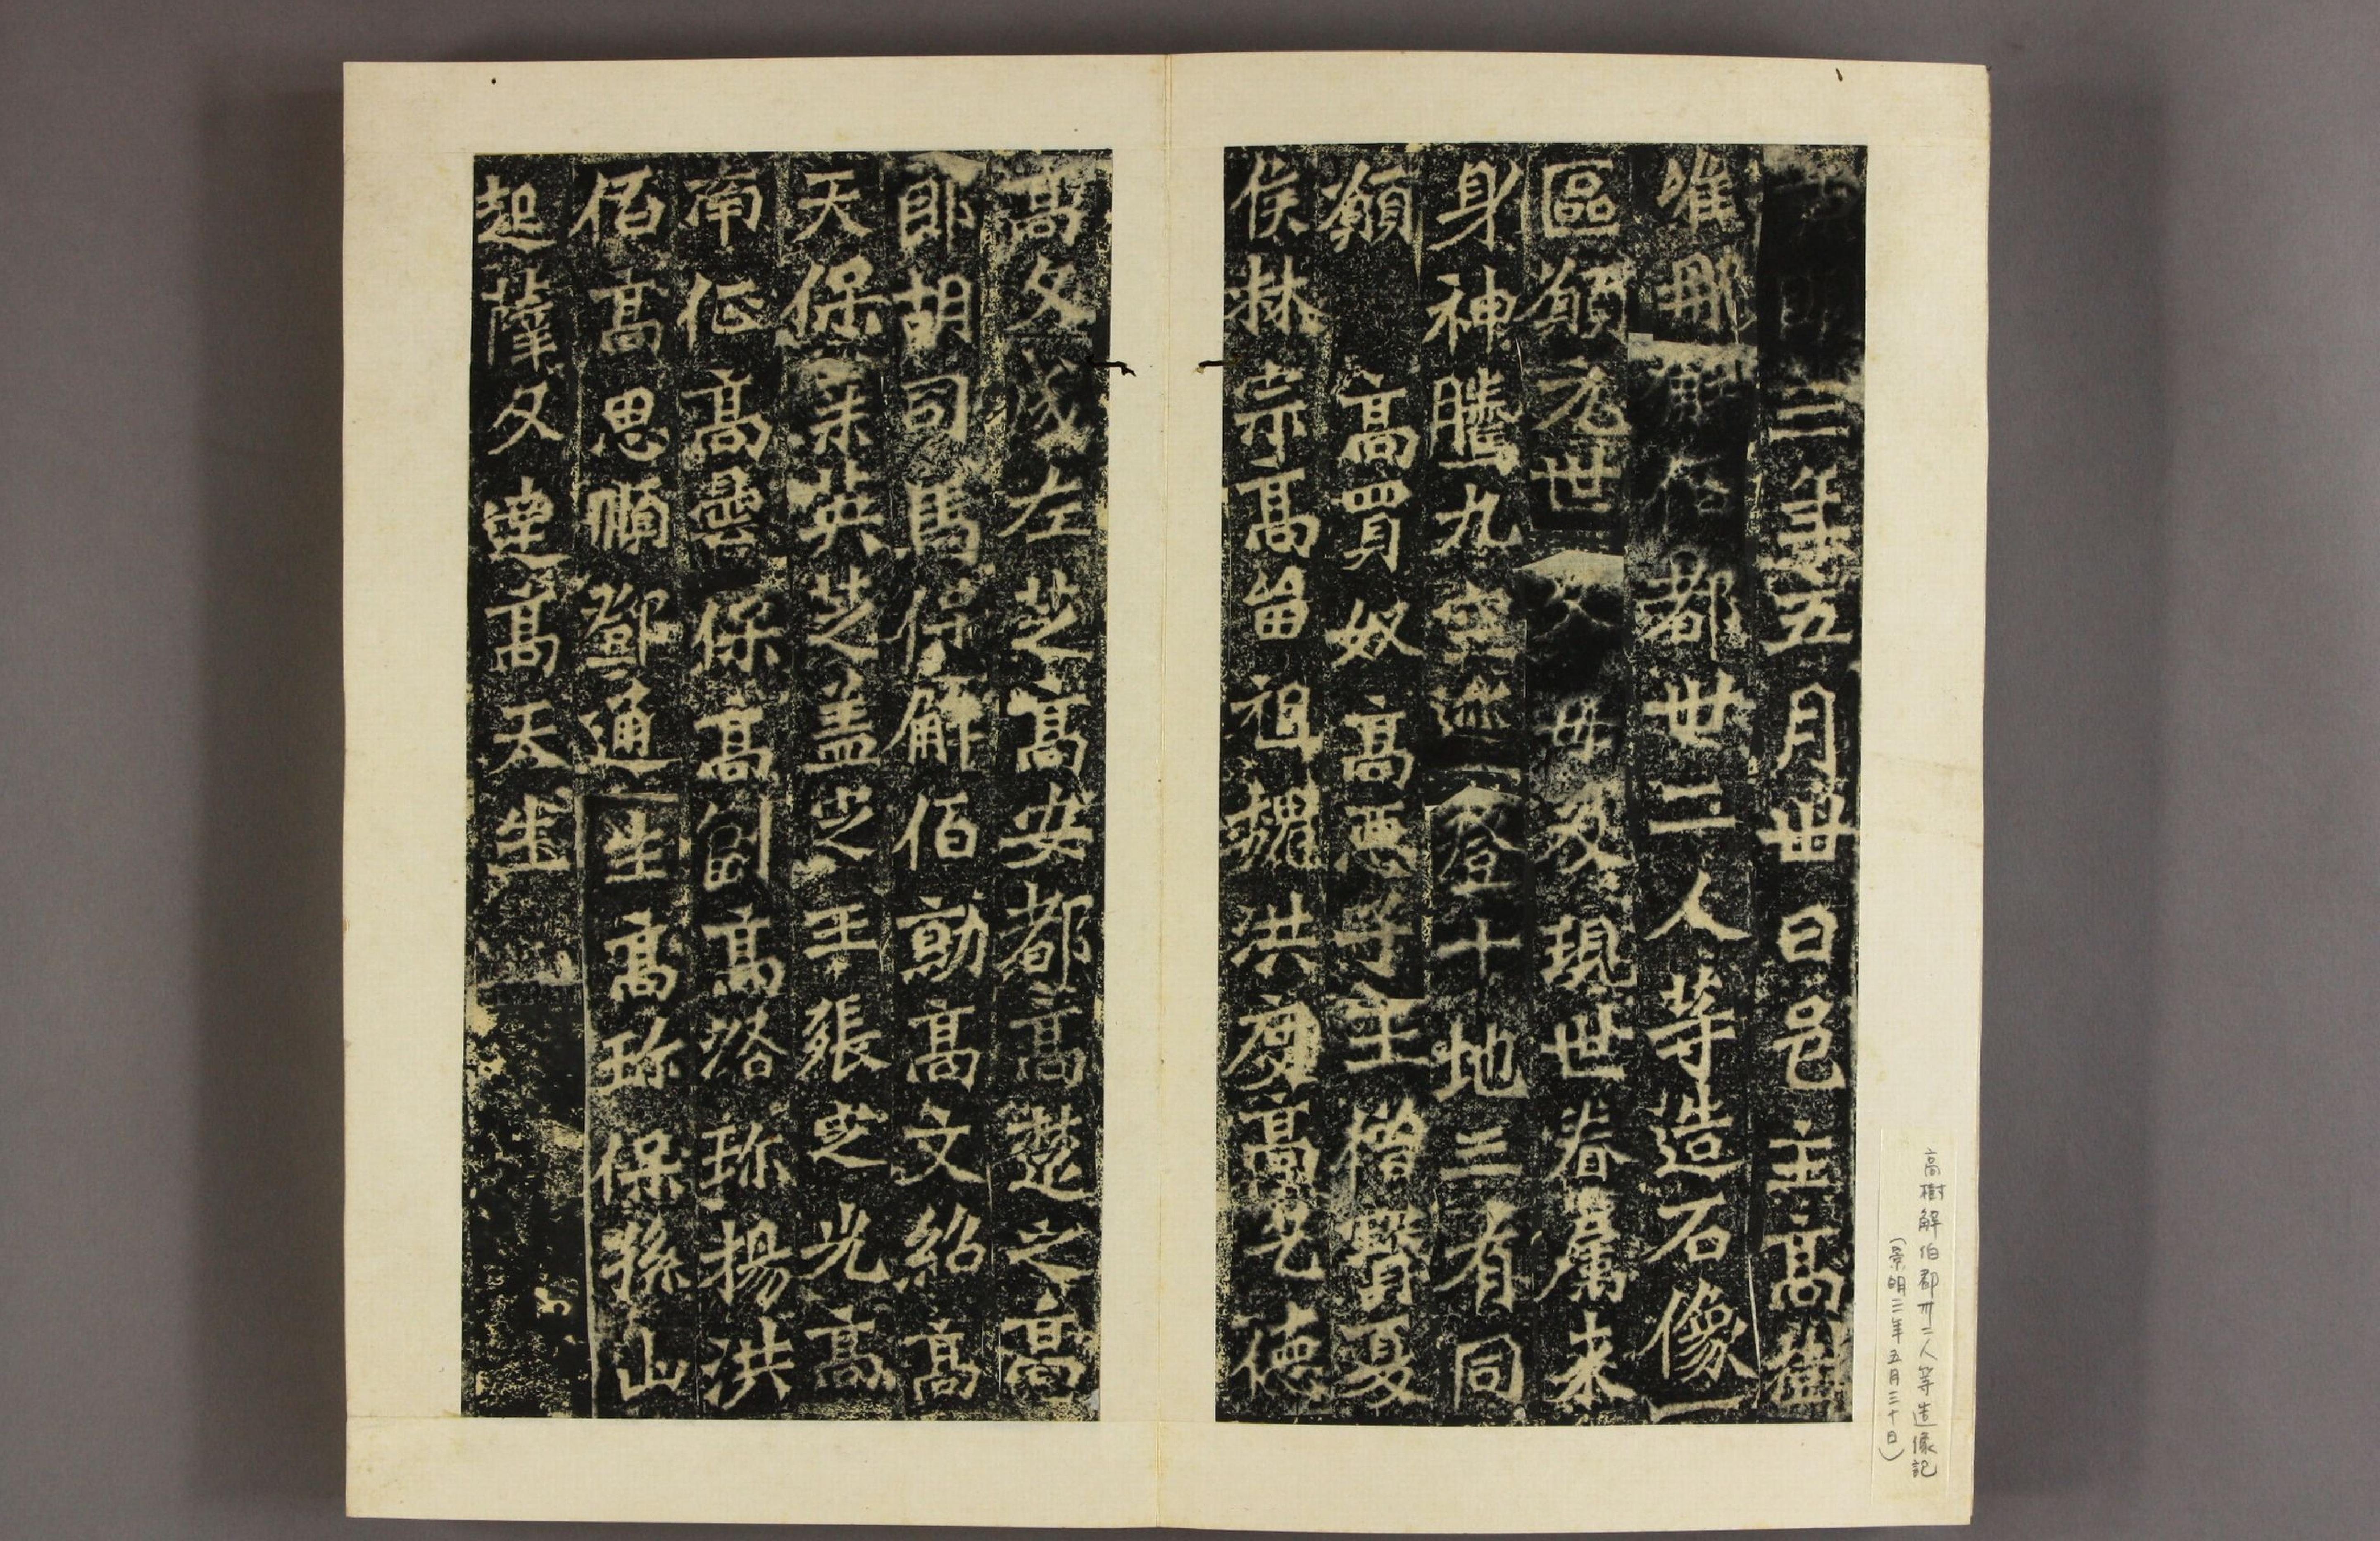 三年五月卅日邑主高樹
唯那解伯都卅二人等造石像一
區願元世父母及現世眷屬来
身神騰九空迹登十地三有同
願 高買奴 高惡子 王僧寶 夏
侯林宗 高留祖 魏洪慶 高乞德
高文成 左芝 高安都 高楚之 高
郎胡 司馬保 解佰勍 高文紹 高
天保 英芝 盖 王張 光 高
南 高曇保 高 高洛珎 楊洪
佰 高思順 鄧通生 高珎保 孫山
起 薩文達 高天生
高樹解伯都卅二人等造像記
(景明三年五月三十日)